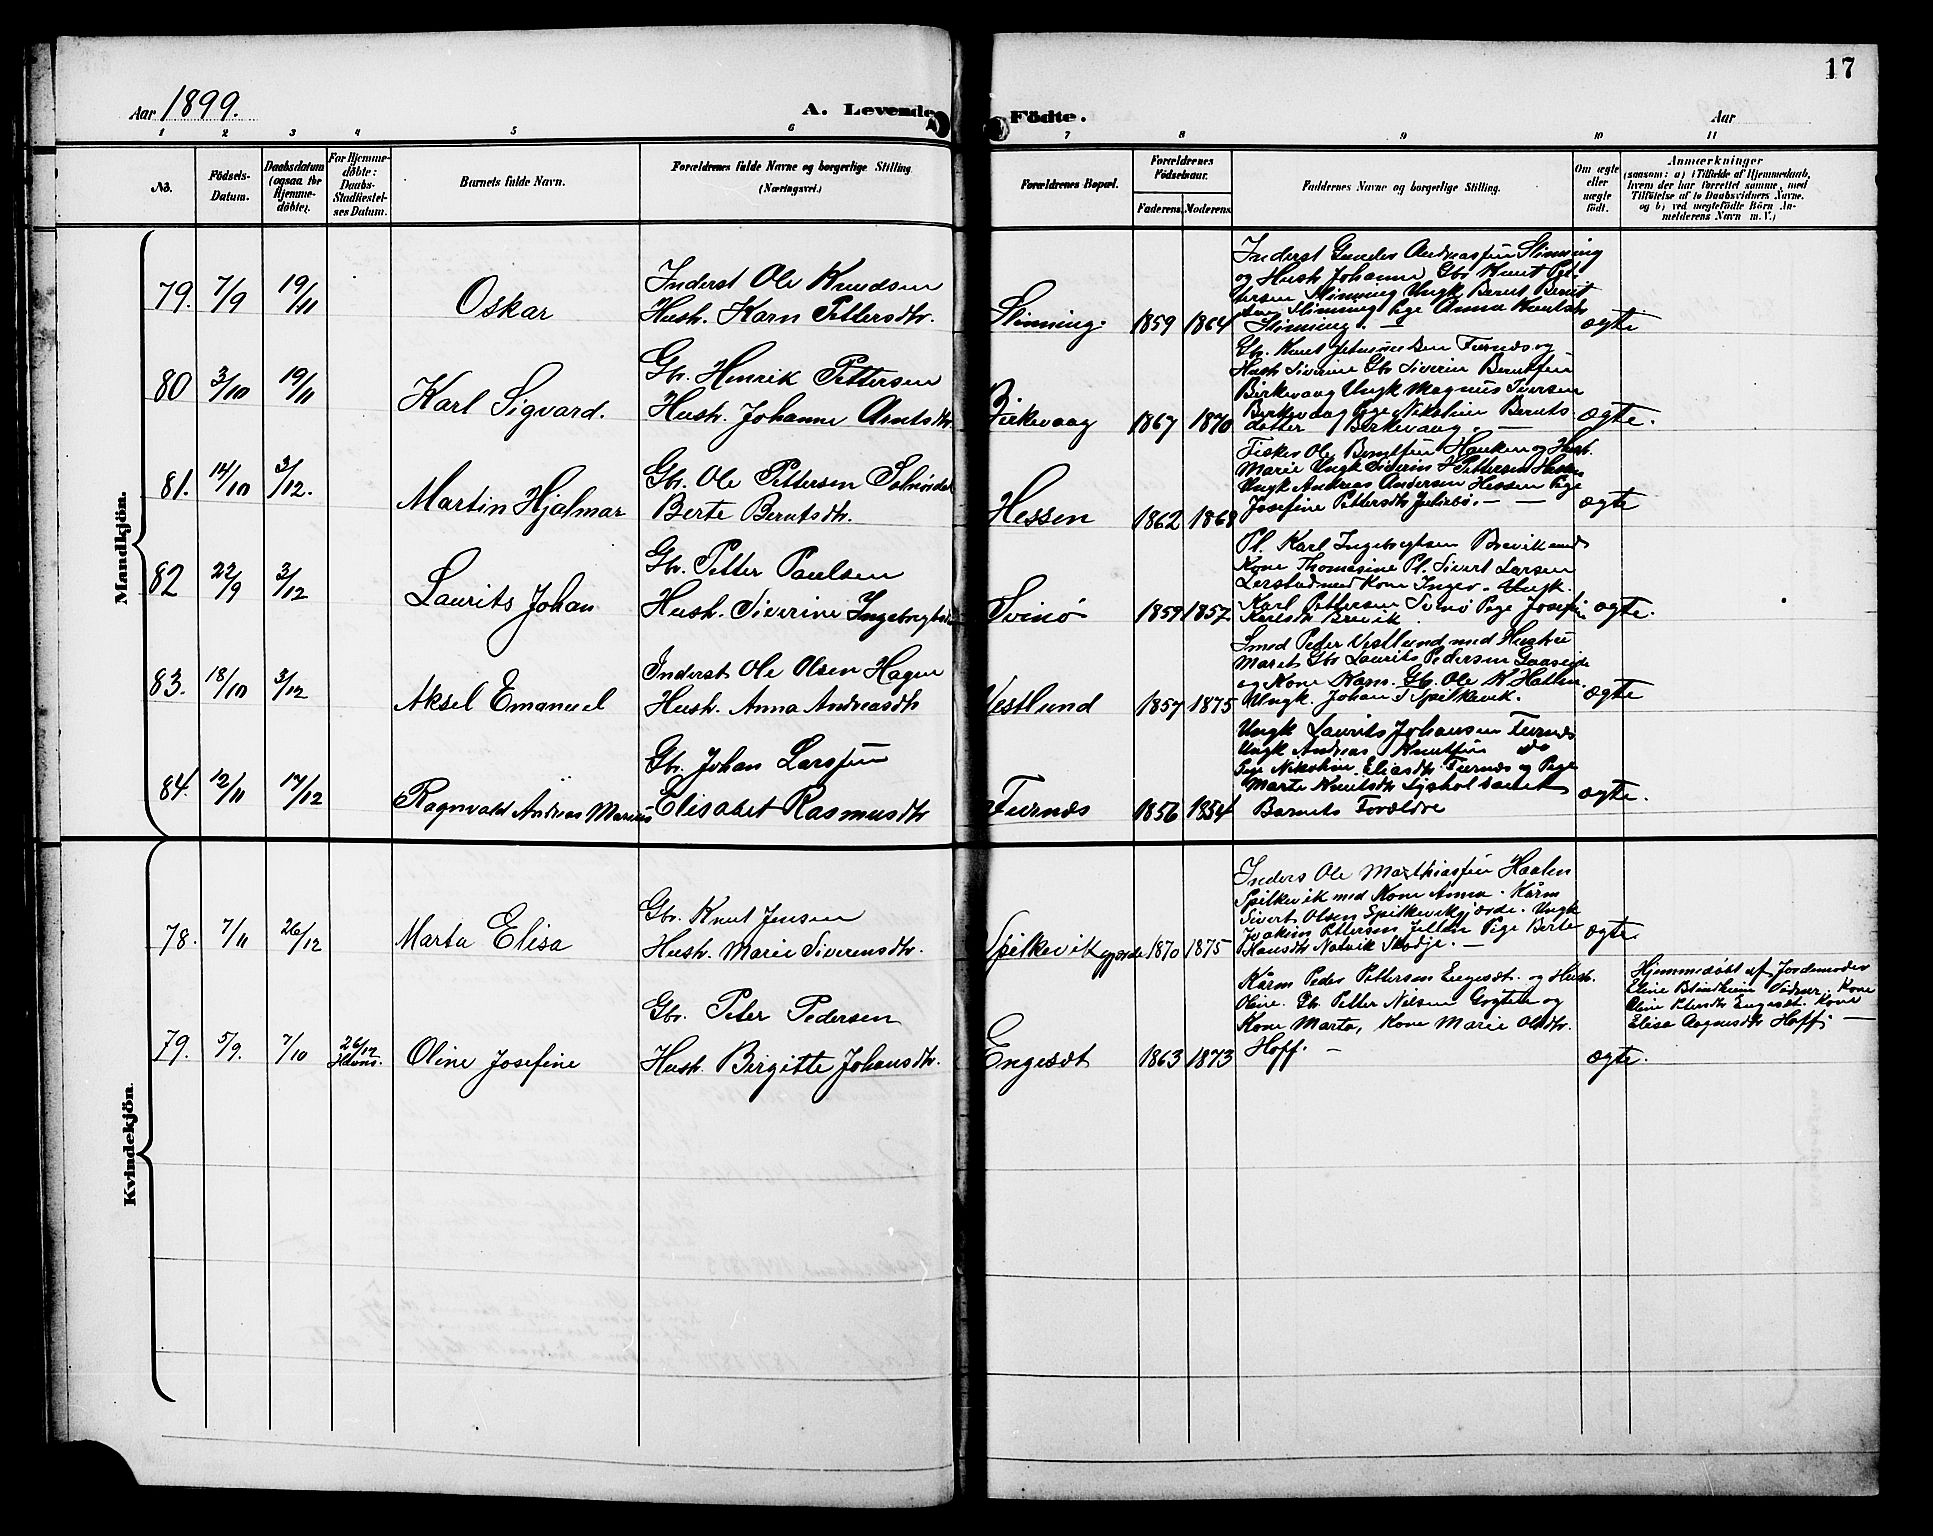 17
Aar 1899.
A. Levende Födte.
Aar
1 2 3 4 5 6 7 8 9 10 11
No.
Födsels-Datum.
Daabsdatum (ogsaa for Hjemme-döbte).
For Hjemme-döbte: Daabs-Stadfæstel-ses Datum.
Barnets fulde Navn.
Forældrenes fulde Navne og borgerlige Stilling (Næringsvei.)
Forældrenes Bopæl.
Forældrenes Födselsaar.
Faderens. Moderens.
Faddernes Navne og borgerlige Stilling.
Om ægte eller uægte födt.
Anmærkninger
(saasom: a) i Tilfælde af Hjemmedaab,
hvem der har forrettet samme, med
Tilföielse af to Daabsvidners Navne.
og b) ved uægtefödte Börn An-
melderens Navn m. V.)
Mandkjön.
79. 7/9 19/11 Oskar
Inderst Ole Knudsen
Hush. Karn Pettersdtr.
Slinning. 1859 1864
Inderst Gunder Andreassen Slinning
og Hush Johanne Gbr Knut Pet-
tersen Slinning Ungk Bernt Bernt
sen Slinning Pige Anna Knutsdtr
Slinning. —
ægte
80 3/10 19/11 Karl Sigvard.
Gbr. Henrik Pettersen
Hush. Johanne Arntsdtr
Birkevaag 1867 1870
Gbr. Knut Furnæs og
Hush Siverine Gbr Siverin Berntsen
Birkevaag Ungk Magnus Iversen
Birkevaag Pige Nikoline Bernts-
datter Birkevaag. —
ægte.
81. 14/10 3/12. Martin Hjalmar
Gbr. Ole Pettersen
Berte Berntsdtr.
Hessen 1862 1868
Fisker Ole Berntsen Hauken og Hush.
Marie Ungk Siverin Pettersen Hessen
Ungk Andreas Andersen Hessen Pige
Josefine Pettersdtr —
ægte
82 22/9 3/12 Laurits Johan
Gbr. Petter Paulsen
Hush. Siverine Ingebregtsdtr
Svinö 1859 1857
Pl. Karl Ingebregtsen Brevik med
Kone Thomasine Pl. Sivert Larsen
Lerstad med Kone Inger. Ungk.
Karl Pettersen Svinö Pige Josefine
Karlsdtr Brevik.
ægte.
83. 18/10 3/12 Aksel Emanuel
Inderst Ole Olsen Hagen
Hush. Anna Andreasdtr
Vestlund 1857 1875
Smed Peder Vestlund med Hustru
Maret Gbr Laurits Pedersen Gaaseide
og Kone Karn. Gbr Ole K Hatlen.
Ungk. Johan T Spilkevik.
ægte
84. 12/11 17/12 Ragnvald Andreas Marius
Gbr. Johan Larssen
Elisabet Rasmusdtr
Furnæs 1856 1854
Ungk Laurits Johansen Furnæs
Ungk Andreas Knutsen do
Pige Nikoline Eliasdtr Furnæs og Pige
Marte Knutsdtr samt
Barnets Forældre
ægte.
Kvindekjön.
78. 7/11 26/12 Marta Elisa
Gbr. Knut Jensen
Hush. Marie Siverensdtr.
Spilkevikgjerde 1870 1875
Inders Ole Mathiassen Haalen
Spilkevik med Kone Anna. Kårm
Sivert Olsen Spilkevikgjerde. Ungk
Joakim Pettersen Pige Berte
Hansdtr Natvik Skodje. —
ægte.
79. 5/9. 7/10 26/12 Oline Josefine
Gbr. Peter Pedersen
Hush. Birgitte Johansdtr.
Engesæt 1863 1873
Kårm Peder Pettersen Engesæt. og Hush.
Oline. Gbr. Petter Nielsen og
Kone Marta, Kone Marie Olsdtr.
Hoff. —
ægte.
Hjemmedöbt af Jordemoder
Eline Blindheim Vidner. Kone
Oline Petersdtr Engesæt. Kone
Elisa Aagnesdtr Hoff. —